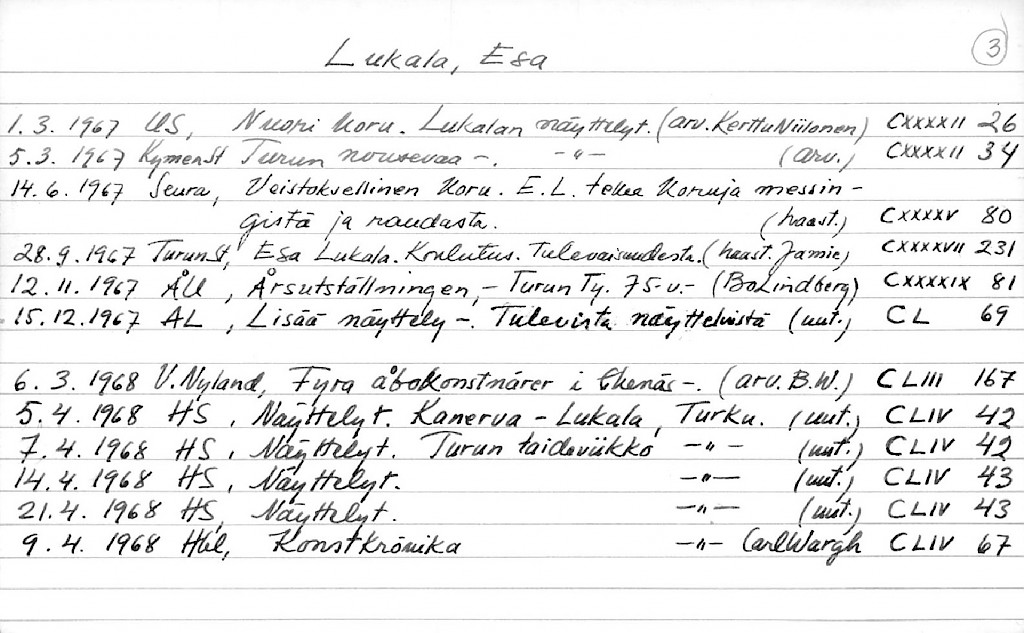 Lukala, Esa
3
1.3. 1967 US, Nuori Koru. Lukalan näyttelyt. (arv. Kerttu Niilonen) CXXXXII 26
5.3. 1967 KymenSt Turun nousevaa -. -"- (arv.) CXXXXII 34
14.6. 1967 Seura, Veistoksellinen Koru. E.L. tekee Koruja messin-
gistä ja raudasta. (haast.) CXXXXV 80
28.9.1967 TurunSt, Esa Lukala. Koulutus. Tulevaisuudesta. (haast. Jamie) CXXXXVII 231
12.11.1967 ÅU, Årsutställningen, - Turun Ty. 75-v.- (Bo Lindberg) CXXXXIX 81
15.12.1967 AL, Lisää näyttely -. Tulevista näyttelyistä (uut.) CL 69
6.3. 1968 V.Nyland, Fyra åbokonstnärer i Ekenäs -. (arv. B.W.) CLIII 167
5.4. 1968 HS, Näyttelyt. Kanerva - Lukala, Turku. (uut.) CLIV 42
7.4. 1968 HS, Näyttelyt. Turun taideviikko -"- (uut.) CLIV 42
14.4. 1968 HS, Näyttelyt. -"- (uut.) CLIV 43
21.4. 1968 HS, Näyttelyt. -"- (uut.) CLIV 43
9.4. 1968 Hbl, Konstkrönika -"- Carl Wargh CLIV 67